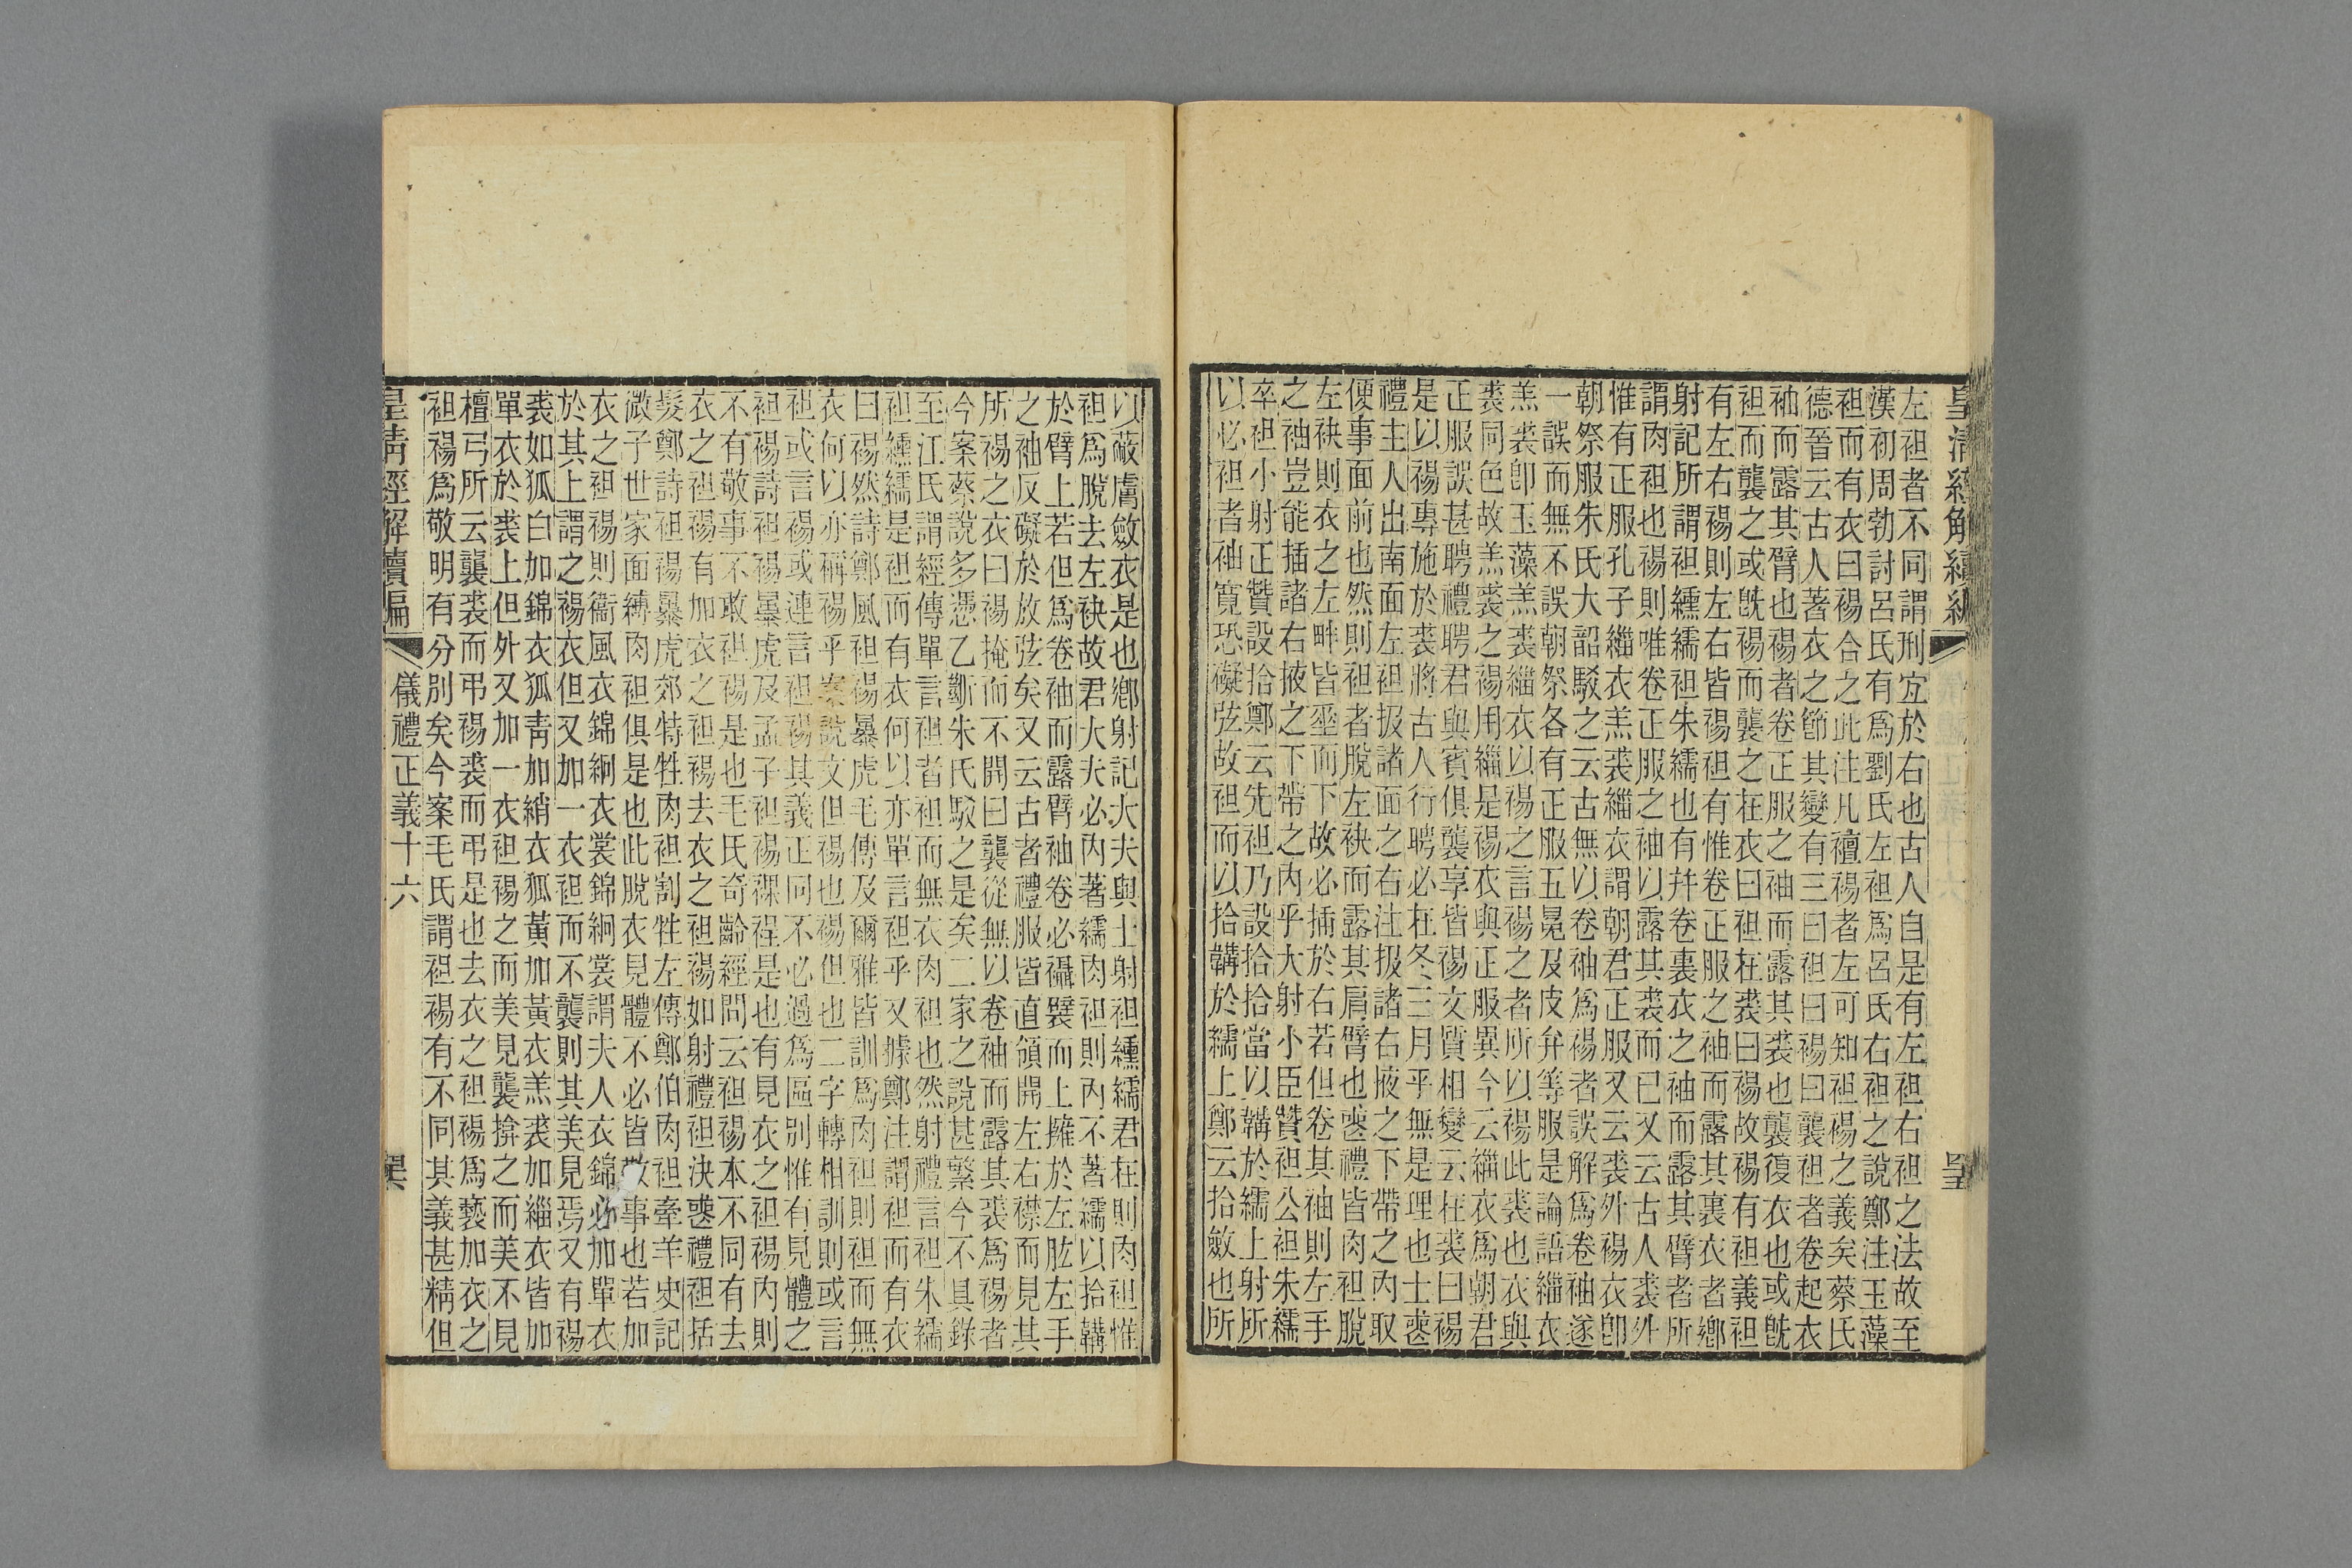 左袒者不同謂刑宜於右也古人自是有左袒右袒之法故至
漢初周勃討呂氏有爲劉氏左袒爲呂氏右袒之說鄭注玉藻
袒而有衣曰裼合之此注凡襢裼者左可知袒裼之義矣蔡氏
德晉云古人著衣之節其變有三曰袒曰裼曰襲袒者卷起衣
袖而露其臂也裼者卷正服之袖而露其裘也襲復衣也或旣
袒而襲之或旣裼而襲之在衣曰袒在裘曰裼故裼有袒義袒
有左右裼則左右皆裼袒有惟卷正服之袖而露其裏衣者鄉
射記所謂袒纁襦袒朱襦也有幷卷裏衣之袖而露其臂者所
謂肉袒也裼則唯卷正服之袖以露其裘而已又云古人裘外
惟有正服孔子緇衣羔裘緇衣謂朝君正服又云裘外裼衣卽
朝祭服朱氏大韶駁之云古無以卷袖爲裼者誤解爲卷袖遂
一誤而無不誤朝祭各有正服五冕及皮弁等服是論語緇衣
羔裘卽玉藻羔裘緇衣以裼之言裼之者所以裼此裘也衣與
裘同色故羔裘之裼用緇是裼衣與正服異今云緇衣爲朝君
正服誤甚聘禮聘君與賓俱襲享皆裼文質相變云在裘曰裼
是以裼專施於裘將古人行聘必在冬三月乎無是理也士䘮
禮主人出南面左袒扱諸面之右注扱諸右掖之下帶之內取
便事面前也然則袒者脫左袂而露其肩臂也䘮禮皆肉袒脫
左袂則衣之左畔皆垂而下故必插於右若但卷其袖則左手
之袖豈能插諸右掖之下帶之內乎大射小臣贊袒公袒朱襦
卒袒小射正贊設拾鄭云先袒乃設拾拾當以韝於襦上射所
以必袒者袖寬恐礙弦故袒而以拾韝於襦上鄭云拾斂也所
以蔽膚斂衣是也鄉射記大夫與士射袒纁襦君在則肉袒惟
袒爲脫去左袂故君大夫必內著襦肉袒則內不著襦以拾韝
於臂上若但爲卷袖而露臂袖卷必襵襞而上擁於左肱左手
之袖反礙於放弦矣又云古者禮服皆直領開左右襟而見其
所裼之衣曰裼掩而不開曰襲從無以卷袖而露其裘爲裼者
今案蔡說多憑乙斷朱氏駁之是矣二家之說甚繁今不具錄
至江氏謂經傳單言袒者袒而無衣肉袒也然射禮言袒朱襦
袒纁襦是袒而有衣何以亦單言袒乎又據鄭注謂袒而有衣
曰裼然詩鄭風袒裼暴虎毛傳及爾雅皆訓爲肉袒則袒而無
衣何以亦稱裼乎案說文但裼也裼但也二字轉相訓則或言
袒或言裼或連言袒裼其義正同不必過爲區別惟有見體之
袒裼詩袒裼暴虎及孟子袒裼裸裎是也有見衣之袒裼內則
不有敬事不敢袒裼是也毛氏奇齡經問云袒裼本不同有去
衣之袒裼有加衣之袒裼去衣之袒裼如射禮袒決䘮禮袒括
髮鄭詩袒裼暴虎郊特牲肉袒割牲左傳鄭伯肉袒牽羊史記
微子世家面縛肉袒俱是也此脫衣見體不必皆敬事也若加
衣之袒裼則衞風衣錦絅衣裳錦絅裳謂夫人衣錦必加單衣
於其上謂之裼衣但又加一衣袒而不襲則其美見焉又有裼
裘如狐白加錦衣狐靑加綃衣狐黃加黃衣羔裘加緇衣皆加
單衣於裘上但外又加一衣袒裼之而美見襲揜之而美不見
檀弓所云襲裘而弔裼裘而弔是也去衣之袒裼爲褻加衣之
袒裼爲敬明有分別矣今案毛氏謂袒裼有不同其義甚精但
儀禮正義十六